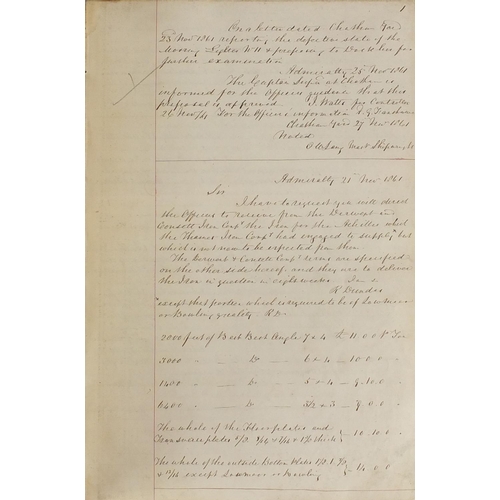 1
On a letter dated Chatham Yard
25 Nov 1861 reporting the defective state of the
Mooring Lighter No & proposing to Dock her for
further examination
Admiralty 25 Nov 1861
The Captain Supt at Chatham is
informed for the Officers guidance that this
proposal is approved. J Watts for Controller
26 Nov/61 For the Officers information
Chatham Yard 27 Nov 1861
Noted
O W Lang Mast Shipwright
Admiralty 21 Nov 1861
Sir
I have to request you will direct
the Officers to receive from the Derwent and
Consett Iron Compy the Iron for the Achilles which
the Thames Iron Compy had engaged to supply but
which is not now to be expected from them
The Derwent & Consett Compys terms are specified
on the other side hereof and they are to deliver
the Iron in question in eight weeks I am &
R Dundas
"except that portion which is required to be of Lowmoor
or Bowling quality. R.D.
2000 feet of Best Best Angle 7 x 4 11.0.0 Pr Ton
3000 " — Do — 6 x 4 — 10.0.0 "
1400 " — Do — 5 x 4 — 9.10.0 "
6400 " — Do — 3½ x 3 — 9.0.0 "
The whole of the Floorplates and
Transverse plates thick } 10.10.0 "
The whole of the outside Bottom Plates
except Lowmoor or Bowling } 14.0.0 "